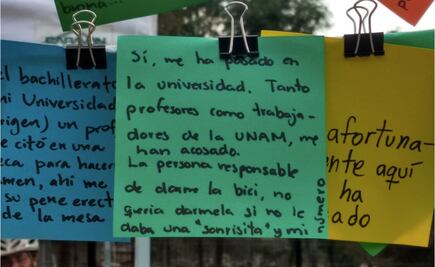 buena...
el bachillerato
mi Universidad
origen) un prof
e citó en una
eca para hacer
amen, ahí me
su pene erect
de la mesa
Sí, me ha pasado en
la universidad. Tanto
profesores como trabaja-
dores de la UNAM, me
han acosado.
La persona responsable
de darme la bici, no
quería darmela si no le
daba una "sonrisita" y mi
número
afortuna-
nte aquí
ha
ado